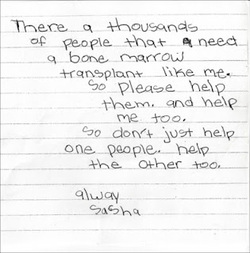 There a thousands
of people that need
a bone marrow
transplant like me.
So please help
them. and help
me too.
So don't just help
one people. help
the other too.
alway
Sasha